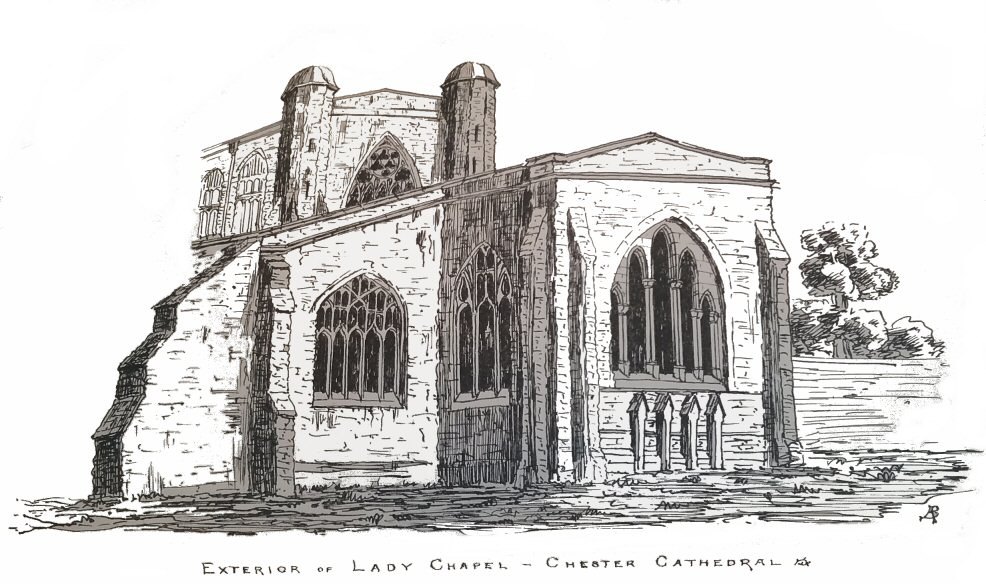 Exterior of Lady Chapel – Chester Cathedral